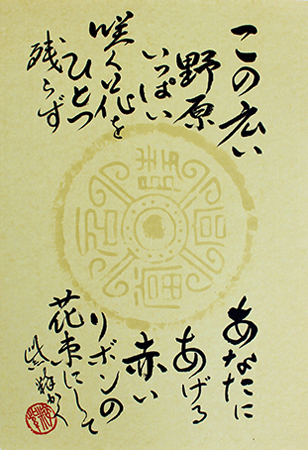 この広い
野原
いっぱい
咲く花を
ひとつ
残らず
あなたに
あげる
赤い
リボンの
花束にして